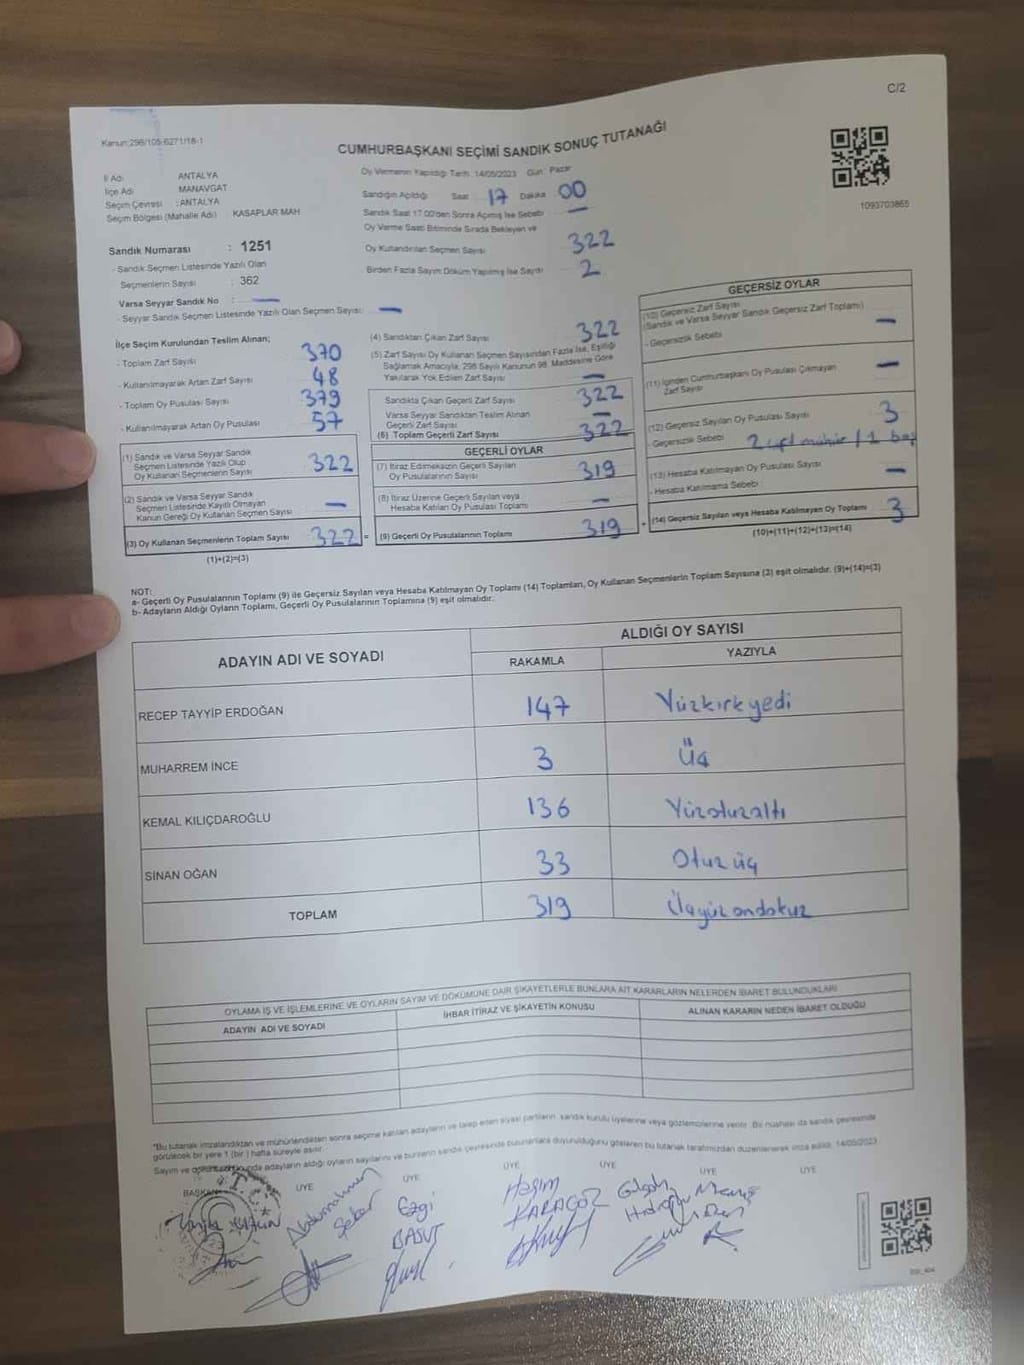 C/2
Kanun:298/105-6271/18-1
CUMHURBAŞKANI SEÇİMİ SANDIK SONUÇ TUTANAĞI
1093703865
İl Adı ANTALYA
İlçe Adı MANAVGAT
Seçim Çevresi : ANTALYA
Seçim Bölgesi (Mahalle Adı) KASAPLAR MAH
Sandık Numarası : 1251
- Sandık Seçmen Listesinde Yazılı Olan
Seçmenlerin Sayısı : 362
Varsa Seyyar Sandık No : —
- Seyyar Sandık Seçmen Listesinde Yazılı Olan Seçmen Sayısı: —
Oy Vermenin Yapıldığı Tarih: 14/05/2023 Gün: Pazar
Sandığın Açıldığı Saat 17 Dakika 00
Sandık Saat 17.00'den Sonra Açılmış İse Sebebi —
Oy Verme Saati Bitiminde Sırada Bekleyen ve
Oy Kullandırılan Seçmen Sayısı 322
Birden Fazla Sayım Döküm Yapılmış İse Sayısı 2
İlçe Seçim Kurulundan Teslim Alınan;
- Toplam Zarf Sayısı 370
- Kullanılmayarak Artan Zarf Sayısı 48
- Toplam Oy Pusulası Sayısı 379
- Kullanılmayarak Artan Oy Pusulası 57
(1) Sandık ve Varsa Seyyar Sandık
Seçmen Listesinde Yazılı Olup
Oy Kullanan Seçmenlerin Sayısı 322
(2) Sandık ve Varsa Seyyar Sandık
Seçmen Listesinde Kayıtlı Olmayan
Kanun Gereği Oy Kullanan Seçmen Sayısı —
(3) Oy Kullanan Seçmenlerin Toplam Sayısı 322 =
(1)+(2)=(3)
(4) Sandıktan Çıkan Zarf Sayısı 322
(5) Zarf Sayısı Oy Kullanan Seçmen Sayısından Fazla İse, Eşitliği
Sağlamak Amacıyla, 298 Sayılı Kanunun 98. Maddesine Göre
Yakılarak Yok Edilen Zarf Sayısı —
Sandıkta Çıkan Geçerli Zarf Sayısı 322
Varsa Seyyar Sandıktan Teslim Alınan
Geçerli Zarf Sayısı —
(6) Toplam Geçerli Zarf Sayısı 322
GEÇERLİ OYLAR
(7) İtiraz Edilmeksizin Geçerli Sayılan
Oy Pusulalarının Sayısı 319
(8) İtiraz Üzerine Geçerli Sayılan veya
Hesaba Katılan Oy Pusulası Toplamı —
(9) Geçerli Oy Pusulalarının Toplamı 319 +
GEÇERSİZ OYLAR
(10) Geçersiz Zarf Sayısı
(Sandık ve Varsa Seyyar Sandık Geçersiz Zarf Toplamı) —
- Geçersizlik Sebebi
(11) İçinden Cumhurbaşkanı Oy Pusulası Çıkmayan
Zarf Sayısı —
(12) Geçersiz Sayılan Oy Pusulası Sayısı 3
- Geçersizlik Sebebi 2 çift mühür / 1 boş
(13) Hesaba Katılmayan Oy Pusulası Sayısı —
- Hesaba Katılmama Sebebi
(14) Geçersiz Sayılan veya Hesaba Katılmayan Oy Toplamı 3
(10)+(11)+(12)+(13)=(14)
NOT:
a- Geçerli Oy Pusulalarının Toplamı (9) ile Geçersiz Sayılan veya Hesaba Katılmayan Oy Toplamı (14) Toplamları, Oy Kullanan Seçmenlerin Toplam Sayısına (3) eşit olmalıdır. (9)+(14)=(3)
b- Adayların Aldığı Oyların Toplamı, Geçerli Oy Pusulalarının Toplamına (9) eşit olmalıdır.
ADAYIN ADI VE SOYADI ALDIĞI OY SAYISI
RAKAMLA YAZIYLA
RECEP TAYYİP ERDOĞAN 147 Yüzkırkyedi
MUHARREM İNCE 3 Üç
KEMAL KILIÇDAROĞLU 136 Yüzotuzaltı
SİNAN OĞAN 33 Otuzüç
TOPLAM 319 Üçyüzondokuz
OYLAMA İŞ VE İŞLEMLERİNE VE OYLARIN SAYIM VE DÖKÜMÜNE DAİR ŞİKAYETLERLE BUNLARA AİT KARARLARIN NELERDEN İBARET BULUNDUKLARI
ADAYIN ADI VE SOYADI İHBAR İTİRAZ VE ŞİKAYETİN KONUSU ALINAN KARARIN NEDEN İBARET OLDUĞU
*Bu tutanak imzalandıktan ve mühürlendikten sonra seçime katılan adayların ve talep eden siyasi partilerin, sandık kurulu üyelerine veya gözlemcilerine verilir. Bir nüshası da sandık çevresinde
görülecek bir yere 1 (bir) hafta süreyle asılır.
Sayım ve dökümü sonunda adayların aldığı oyların sayılarını ve bunların sandık çevresinde bulunanlara duyurulduğunu gösteren bu tutanak tarafımızdan düzenlenerek imza edildi. 14/05/2023
BAŞKAN ÜYE ÜYE ÜYE ÜYE ÜYE ÜYE
T.C.
Abdurrahman Şeker
Ezgi BASUT
Haşim KARAGÖZ